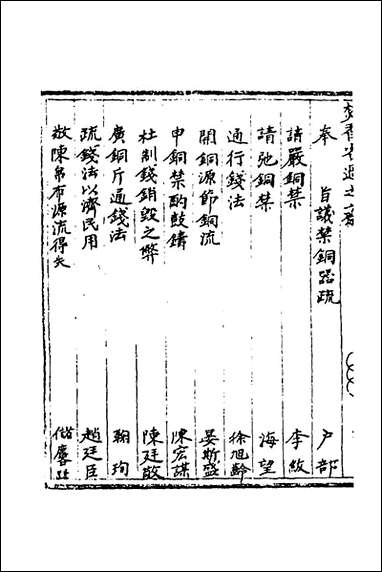 奉　旨議禁銅器疏　戶部
請嚴銅禁　李紱
請弛銅禁　海望
通行錢法　徐旭齡
開銅源節銅流　晏斯盛
申銅禁酌鼓鑄　陳宏謀
杜制錢銷毀之弊　陳廷敬
廣銅斤通錢法　鞠珣
疏錢法以濟民用　趙廷臣
敬陳帛布源流得失　儲麐趾